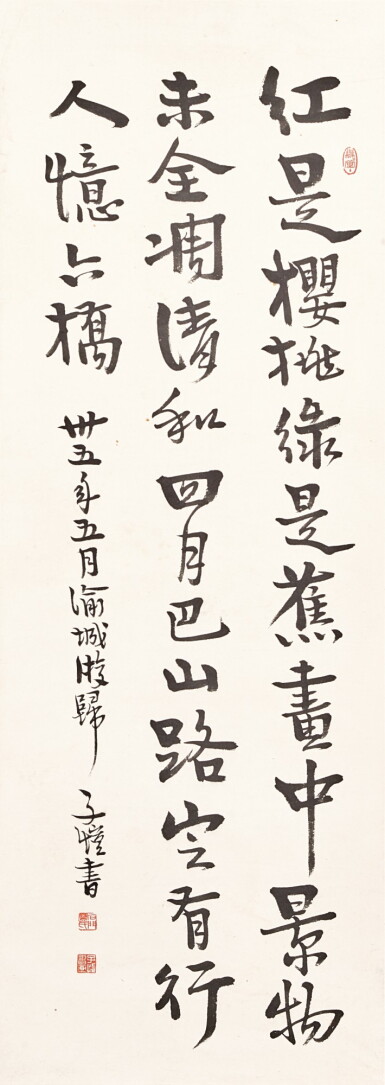 紅是櫻桃綠是蕉畫中景物
未全凋清和四月巴山路定有行
人憶六橋
卅五年五月渝城歸 子愷書